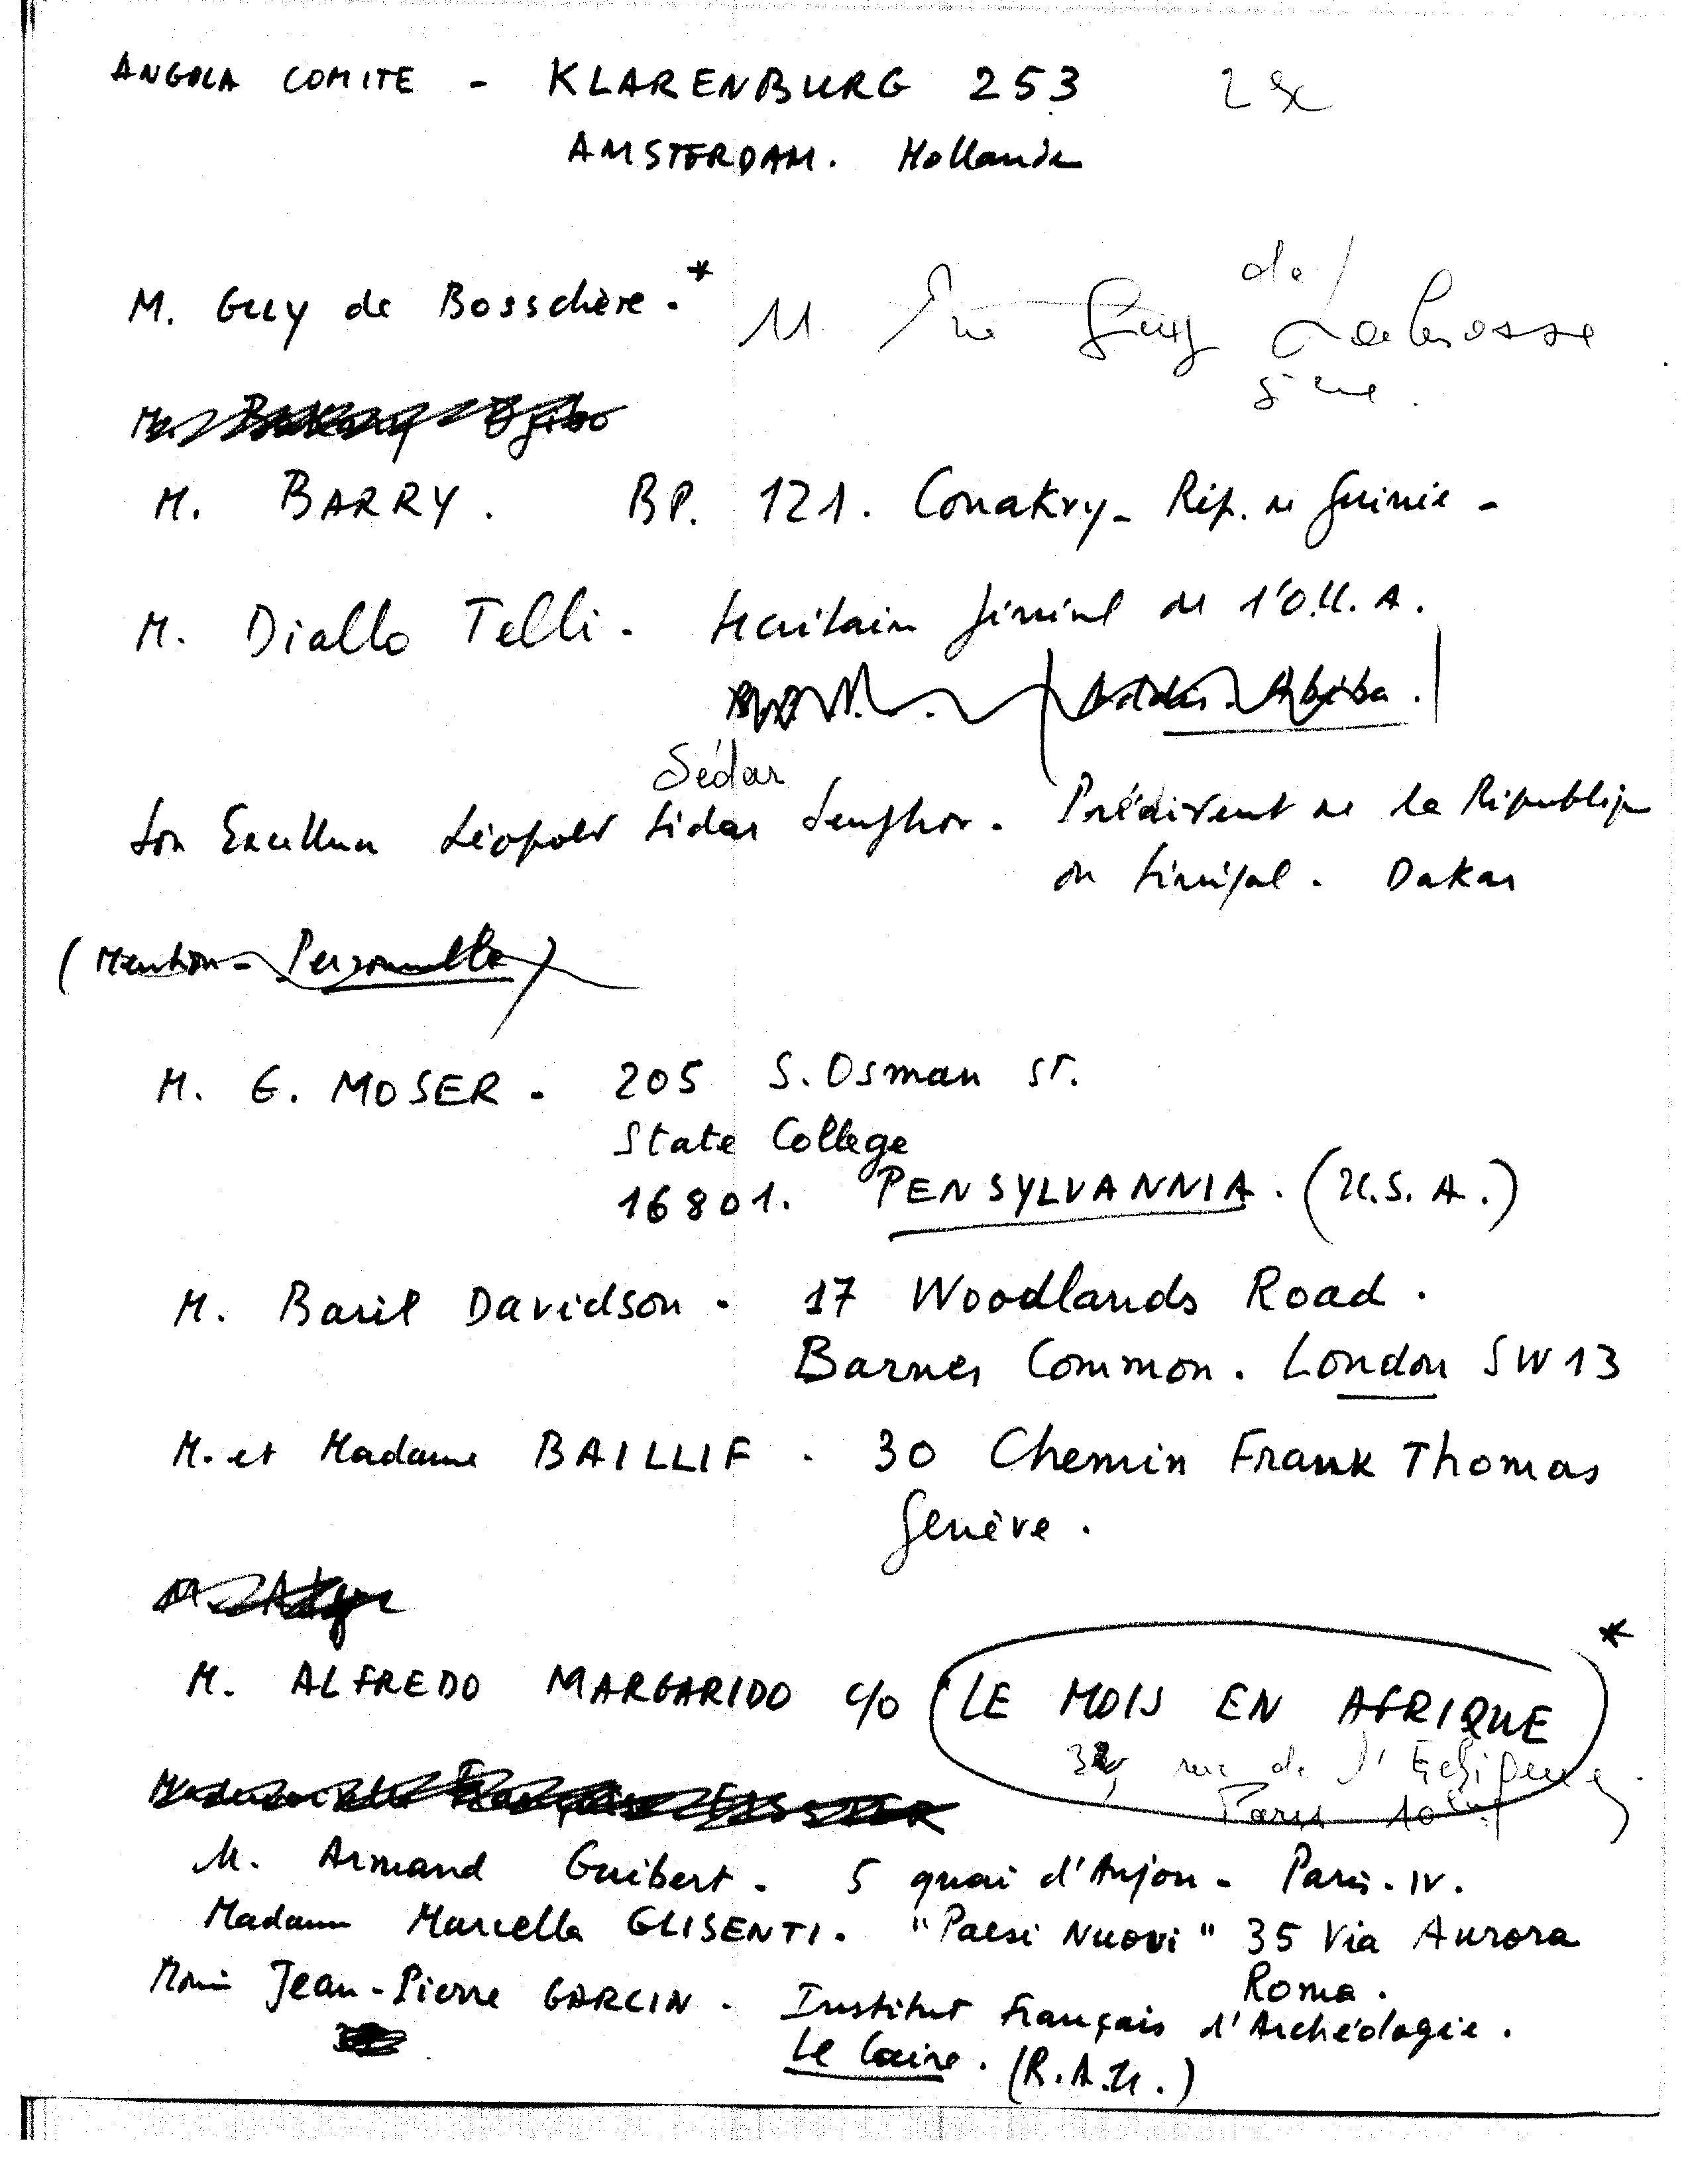 ANGOLA COMITE - KLARENBURG 253
AMSTERDAM. Hollande
M. Guy de Bosschère. * rue Guy de Labrosse
5ème.
M. BARRY. BP. 121. Conakry - Rép. de Guinée -
M. Diallo Telli - Secrétaire général de l'O.U.A.
Addis Abeba.
Sédar
Son Excellence Léopold Sédar Senghor. Président de la République
du Sénégal. Dakar
(Mention - Personnelle)
M. G. MOSER - 205 S. Osman ST.
State College
16801. PENSYLVANNIA. (U.S.A.)
M. Basil Davidson - 17 Woodlands Road.
Barnes Common. London SW 13
M. et Madame BAILLIF. 30 Chemin Frank Thomas
Genève.
M. ALFREDO MARGARIDO c/o LE MOIS EN AFRIQUE *
32, rue de l'Echiquier
Paris 10ème
M. Armand Guibert - 5 quai d'Anjou - Paris - IV.
Madame Marcella GLISENTI. "Paesi Nuovi" 35 Via Aurora
Roma.
Jean-Pierre GARCIN. Institut Français d'Archéologie.
Le Caire. (R.A.U.)